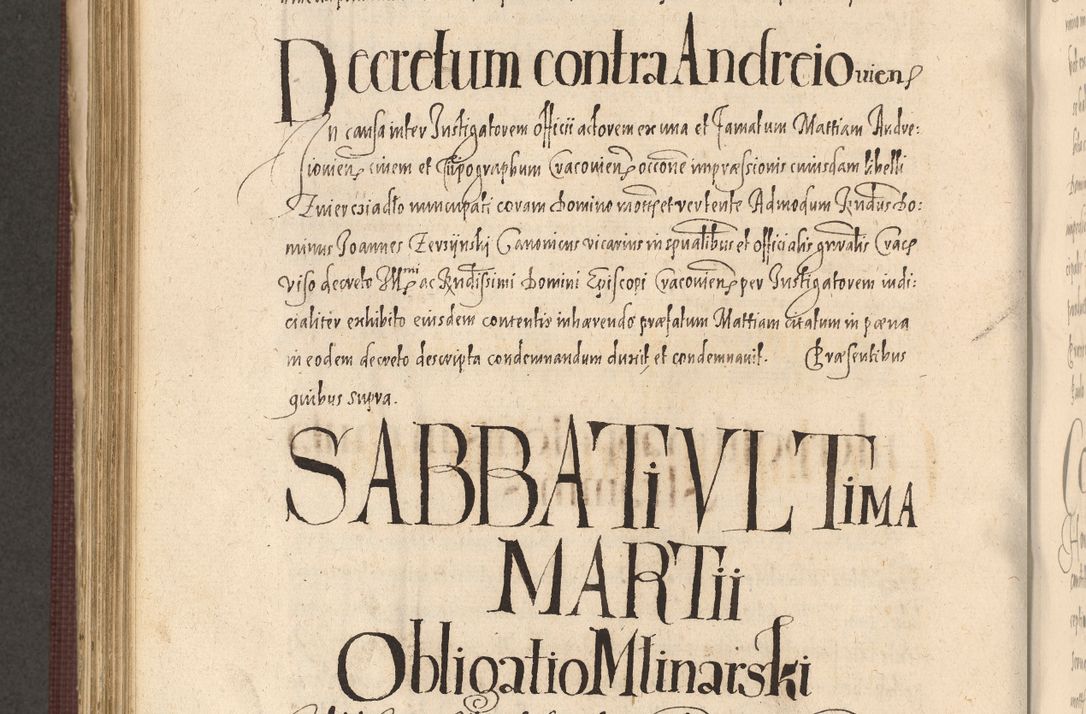 Decretum contra Andreiouien
In causa inter Instigatorem officii actorem ex una et famatum Mattiam Andre:
iouien ciuem et Tÿpographum Cracouien occone impræssionis cuiusdam libelli
Zwierciadło nuncupati coram domino mot et vertente Admodum Rndus Do:
minus Joannes Zerzÿnski Canonicus vicarius in spualibus et officialis gnralis Crac
viso decreto Illmi ac Rndissimi domini Episcopi Cracouien per Instigatorem iudi:
cialiter exhibito eiusdem contentis inhærendo præfatum Mattiam citatum in pæna
in eodem decreto descripta condemnandum duxit et condemnauit. Præsentibus
quibus supra.
SABBATi VLTiMA
MARTii
Obligatio Mlinarski